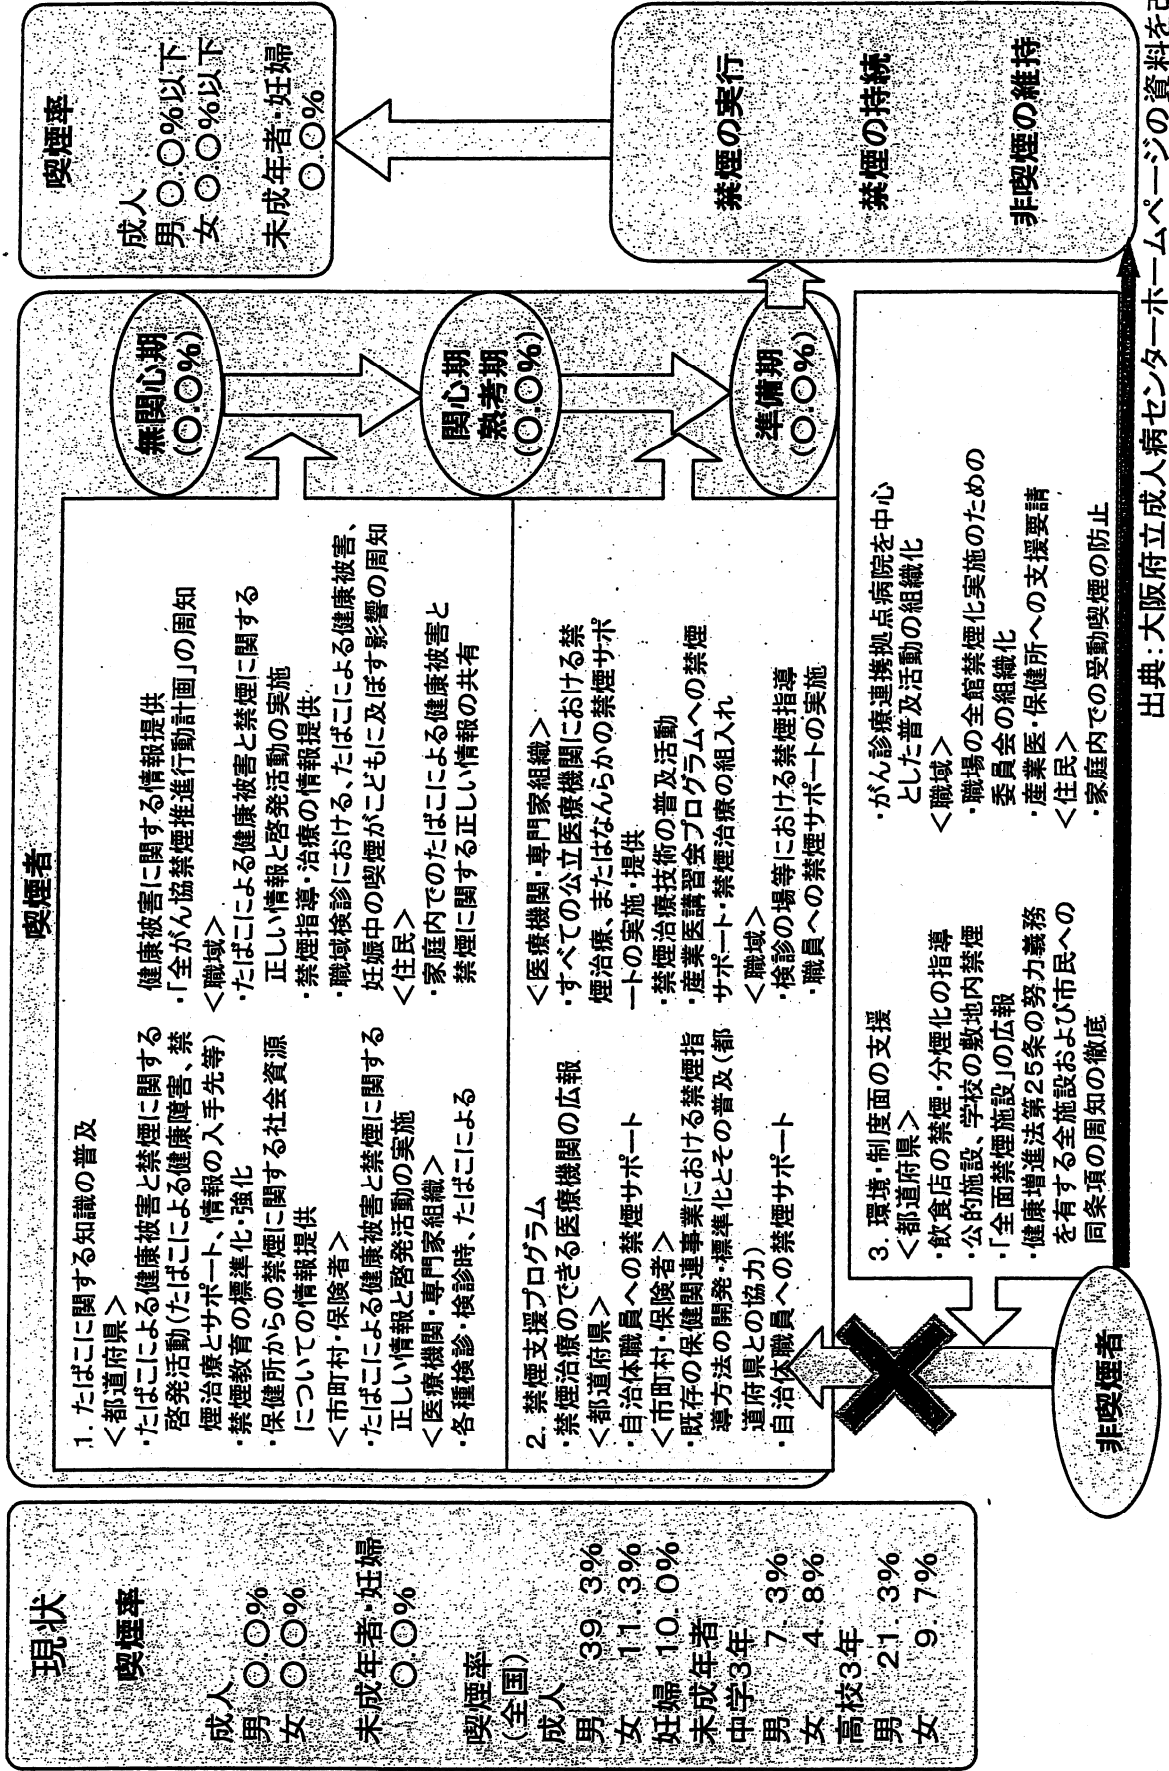 現状
喫煙率
成人
男 〇.〇%
女 〇.〇%
未成年者・妊婦
〇.〇%
喫煙率
(全国)
成人
男 39.3%
女 11.3%
妊婦 10.0%
未成年者
中学3年
男 7.3%
女 4.8%
高校3年
男 21.3%
女 9.7%
喫煙者
1. たばこに関する知識の普及
<都道府県>
・たばこによる健康被害と禁煙に関する
啓発活動(たばこによる健康障害、禁
煙治療とサポート、情報の入手先等)
・禁煙教育の標準化・強化
・保健所からの禁煙に関する社会資源
についての情報提供
<市町村・保険者>
・たばこによる健康被害と禁煙に関する
正しい情報と啓発活動の実施
<医療機関・専門家組織>
・各種検診・検診時、たばこによる
健康被害に関する情報提供
・「全がん協禁煙推進行動計画」の周知
<職域>
・たばこによる健康被害と禁煙に関する
正しい情報と啓発活動の実施
・禁煙指導・治療の情報提供
・職域検診における、たばこによる健康被害、
妊娠中の喫煙がこどもに及ぼす影響の周知
<住民>
・家庭内でのたばこによる健康被害と
禁煙に関する正しい情報の共有
2. 禁煙支援プログラム
・禁煙治療のできる医療機関の広報
<都道府県>
・自治体職員への禁煙サポート
<市町村・保険者>
・既存の保健関連事業における禁煙指
導方法の開発・標準化とその普及(都
道府県との協力)
・自治体職員への禁煙サポート
<医療機関・専門家組織>
・すべての公立医療機関における禁
煙治療、またはなんらかの禁煙サポ
ートの実施・提供
・禁煙治療技術の普及活動
・産業医講習会プログラムへの禁煙
サポート・禁煙治療の組入れ
<職域>
・検診の場等における禁煙指導
・職員への禁煙サポートの実施
無関心期
(〇.〇%)
関心期
熟考期
(〇.〇%)
準備期
(〇.〇%)
3. 環境・制度面の支援
<都道府県>
・飲食店の禁煙・分煙化の指導
・公的施設、学校の敷地内禁煙
・「全面禁煙施設」の広報
・健康増進法第25条の努力義務
を有する全施設および市民への
同条項の周知の徹底
・がん診療連携拠点病院を中心
とした普及活動の組織化
<職域>
・職場の全館禁煙化実施のための
委員会の組織化
・産業医・保健所への支援要請
<住民>
・家庭内での受動喫煙の防止
非喫煙者
喫煙率
成人
男 〇.〇%以下
女 〇.〇%以下
未成年者・妊婦
〇.〇%
禁煙の実行
禁煙の持続
非喫煙の維持
出典:大阪府立成人病センターホームページの資料を